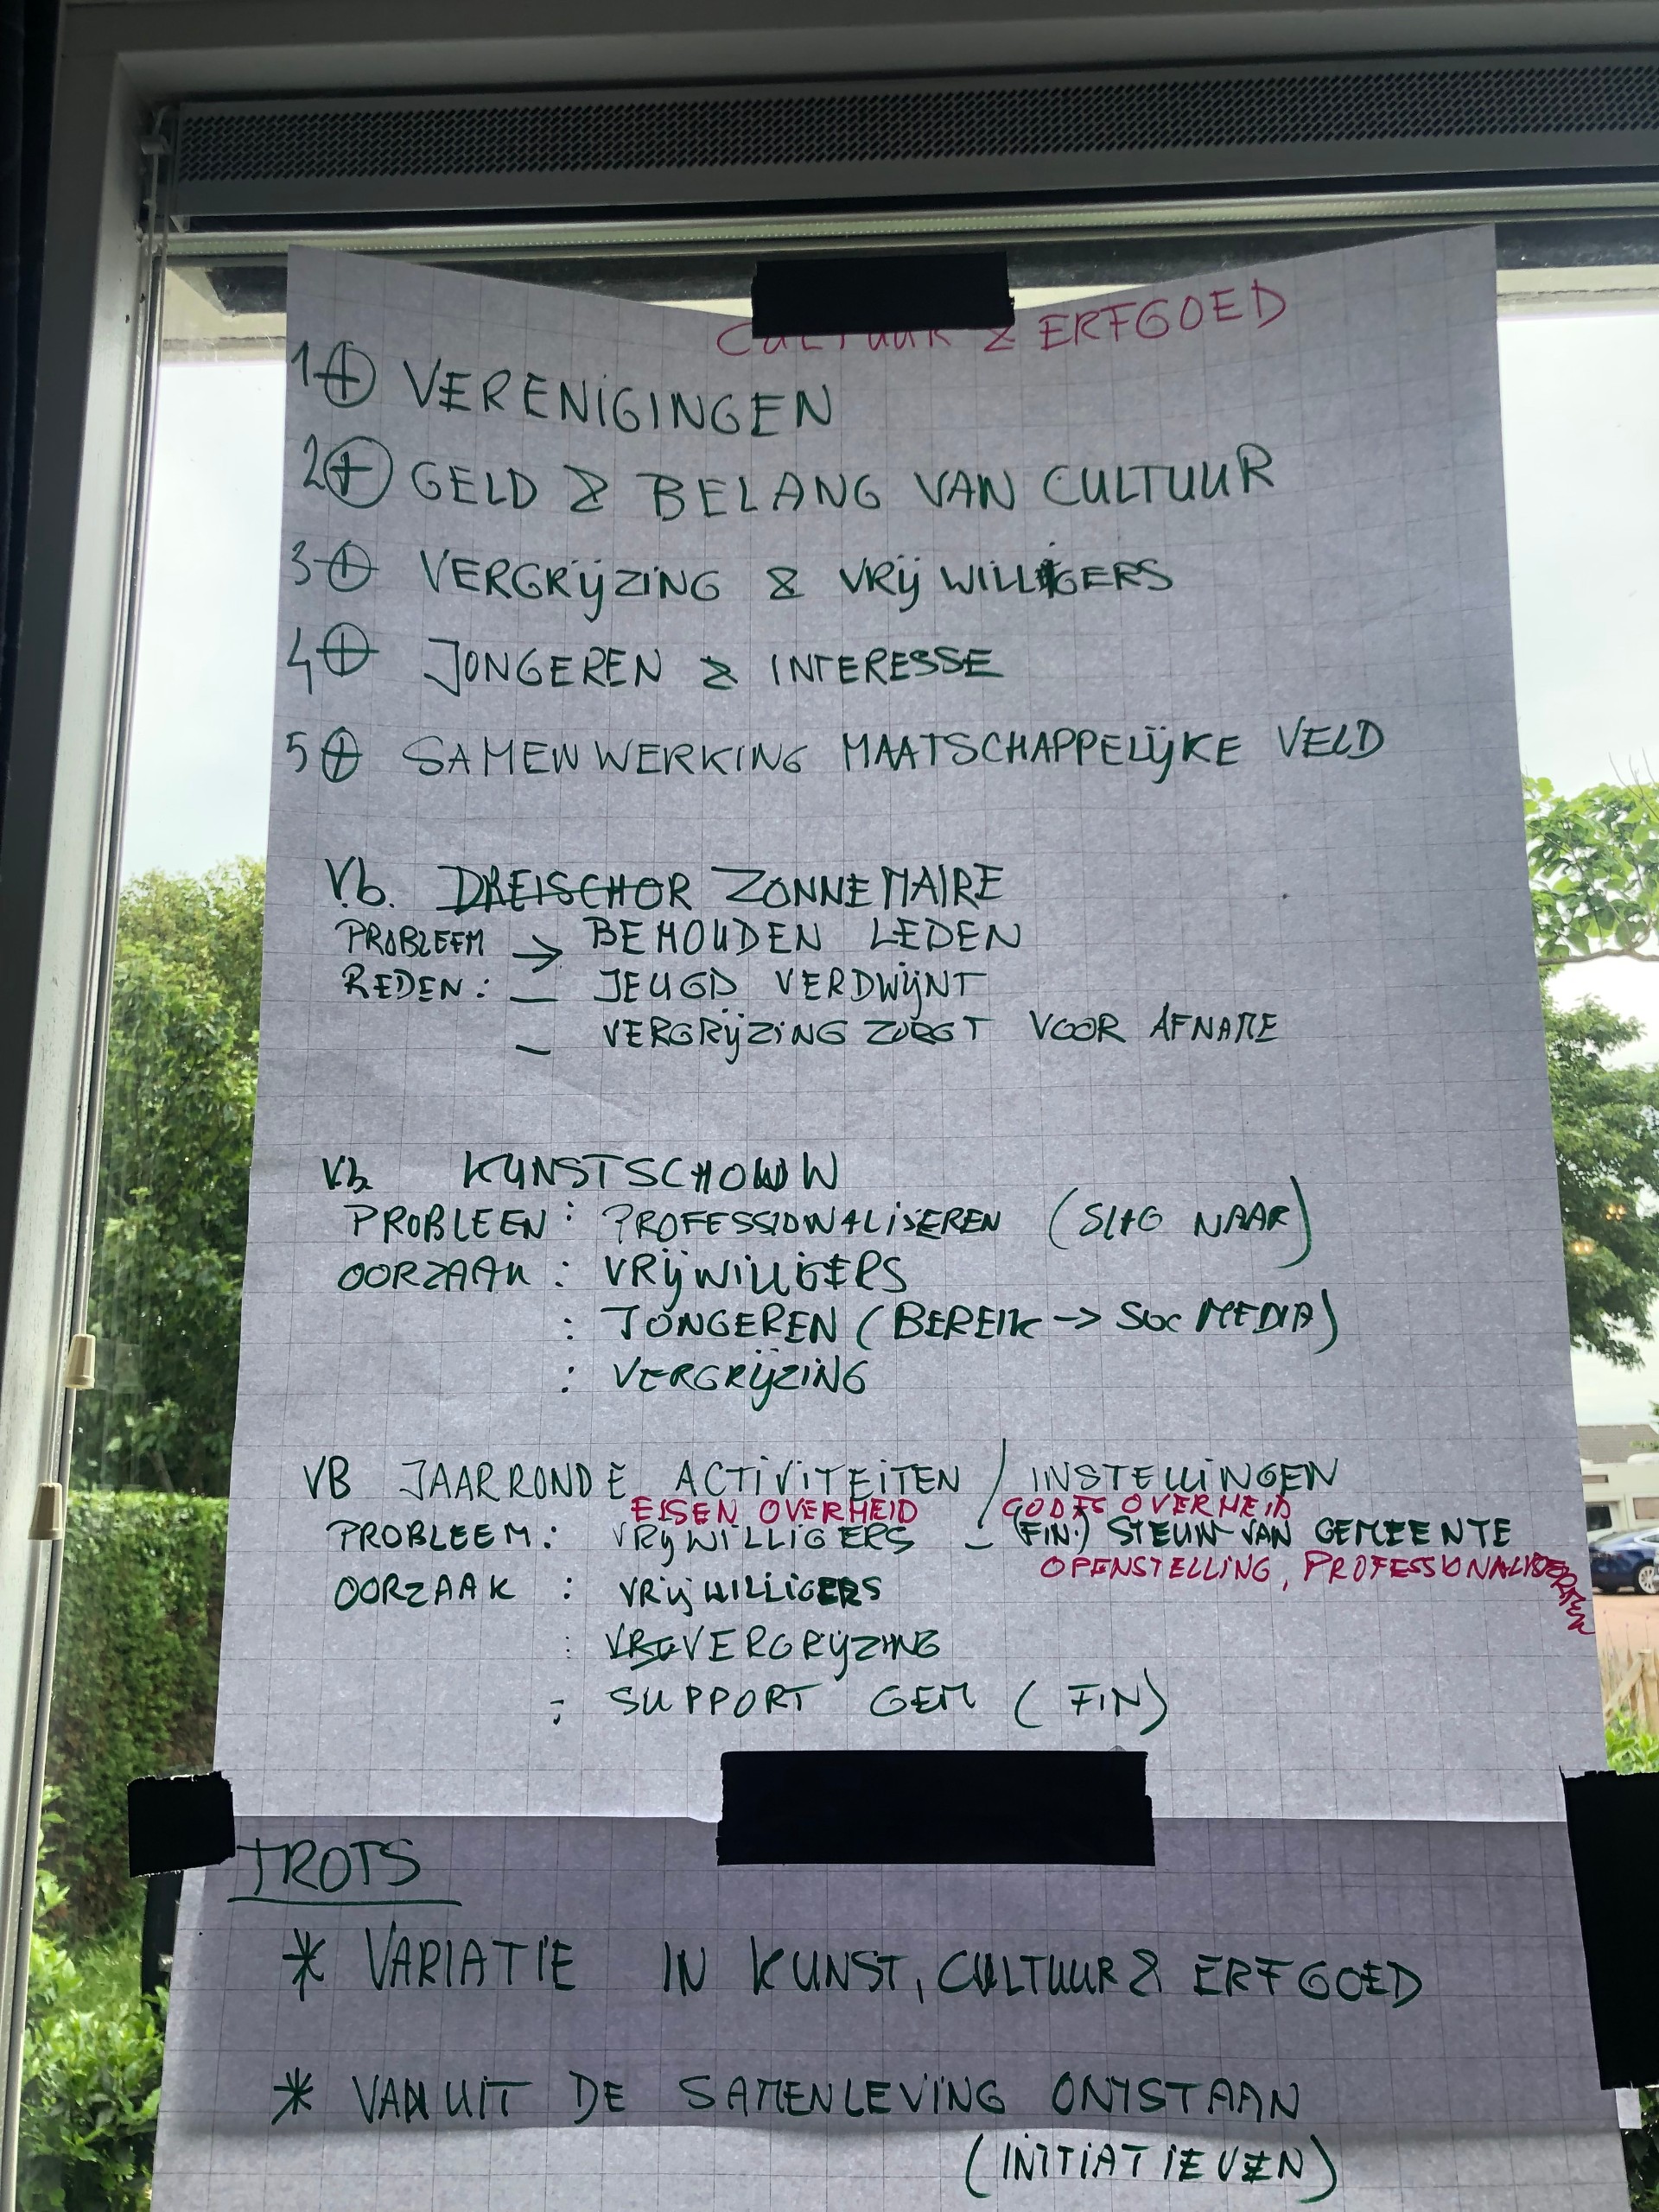 CULTUUR & ERFGOED
1 + VERENIGINGEN
2 + GELD & BELANG VAN CULTUUR
3 + VERGRIJZING & VRIJWILLIGERS
4 + JONGEREN & INTERESSE
5 + SAMENWERKING MAATSCHAPPELIJKE VELD
V.b. DREISCHOR ZONNEMAIRE
PROBLEEM → BEHOUDEN LEDEN
REDEN: — JEUGD VERDWIJNT
— VERGRIJZING ZORGT VOOR AFNAME
V.b. KUNSTSCHOUW
PROBLEEN: PROFESSIONALISEREN (SLAG NAAR)
OORZAAK: VRIJWILLIGERS
: JONGEREN (BEREIK -> SOC MEDIA)
: VERGRIJZING
VB JAARRONDE ACTIVITEITEN / INSTELLINGEN
EISEN OVERHEID CODES OVERHEID
PROBLEEM: VRIJWILLIGERS - (FIN.) STEUN VAN GEMEENTE
OPENSTELLING, PROFESSIONALISERING
OORZAAK: VRIJWILLIGERS
: VERGRIJZING
: SUPPORT GEM (FIN)
TROTS
* VARIATIE IN KUNST, CULTUUR & ERFGOED
* VANUIT DE SAMENLEVING ONTSTAAN
(INITIATIEVEN)